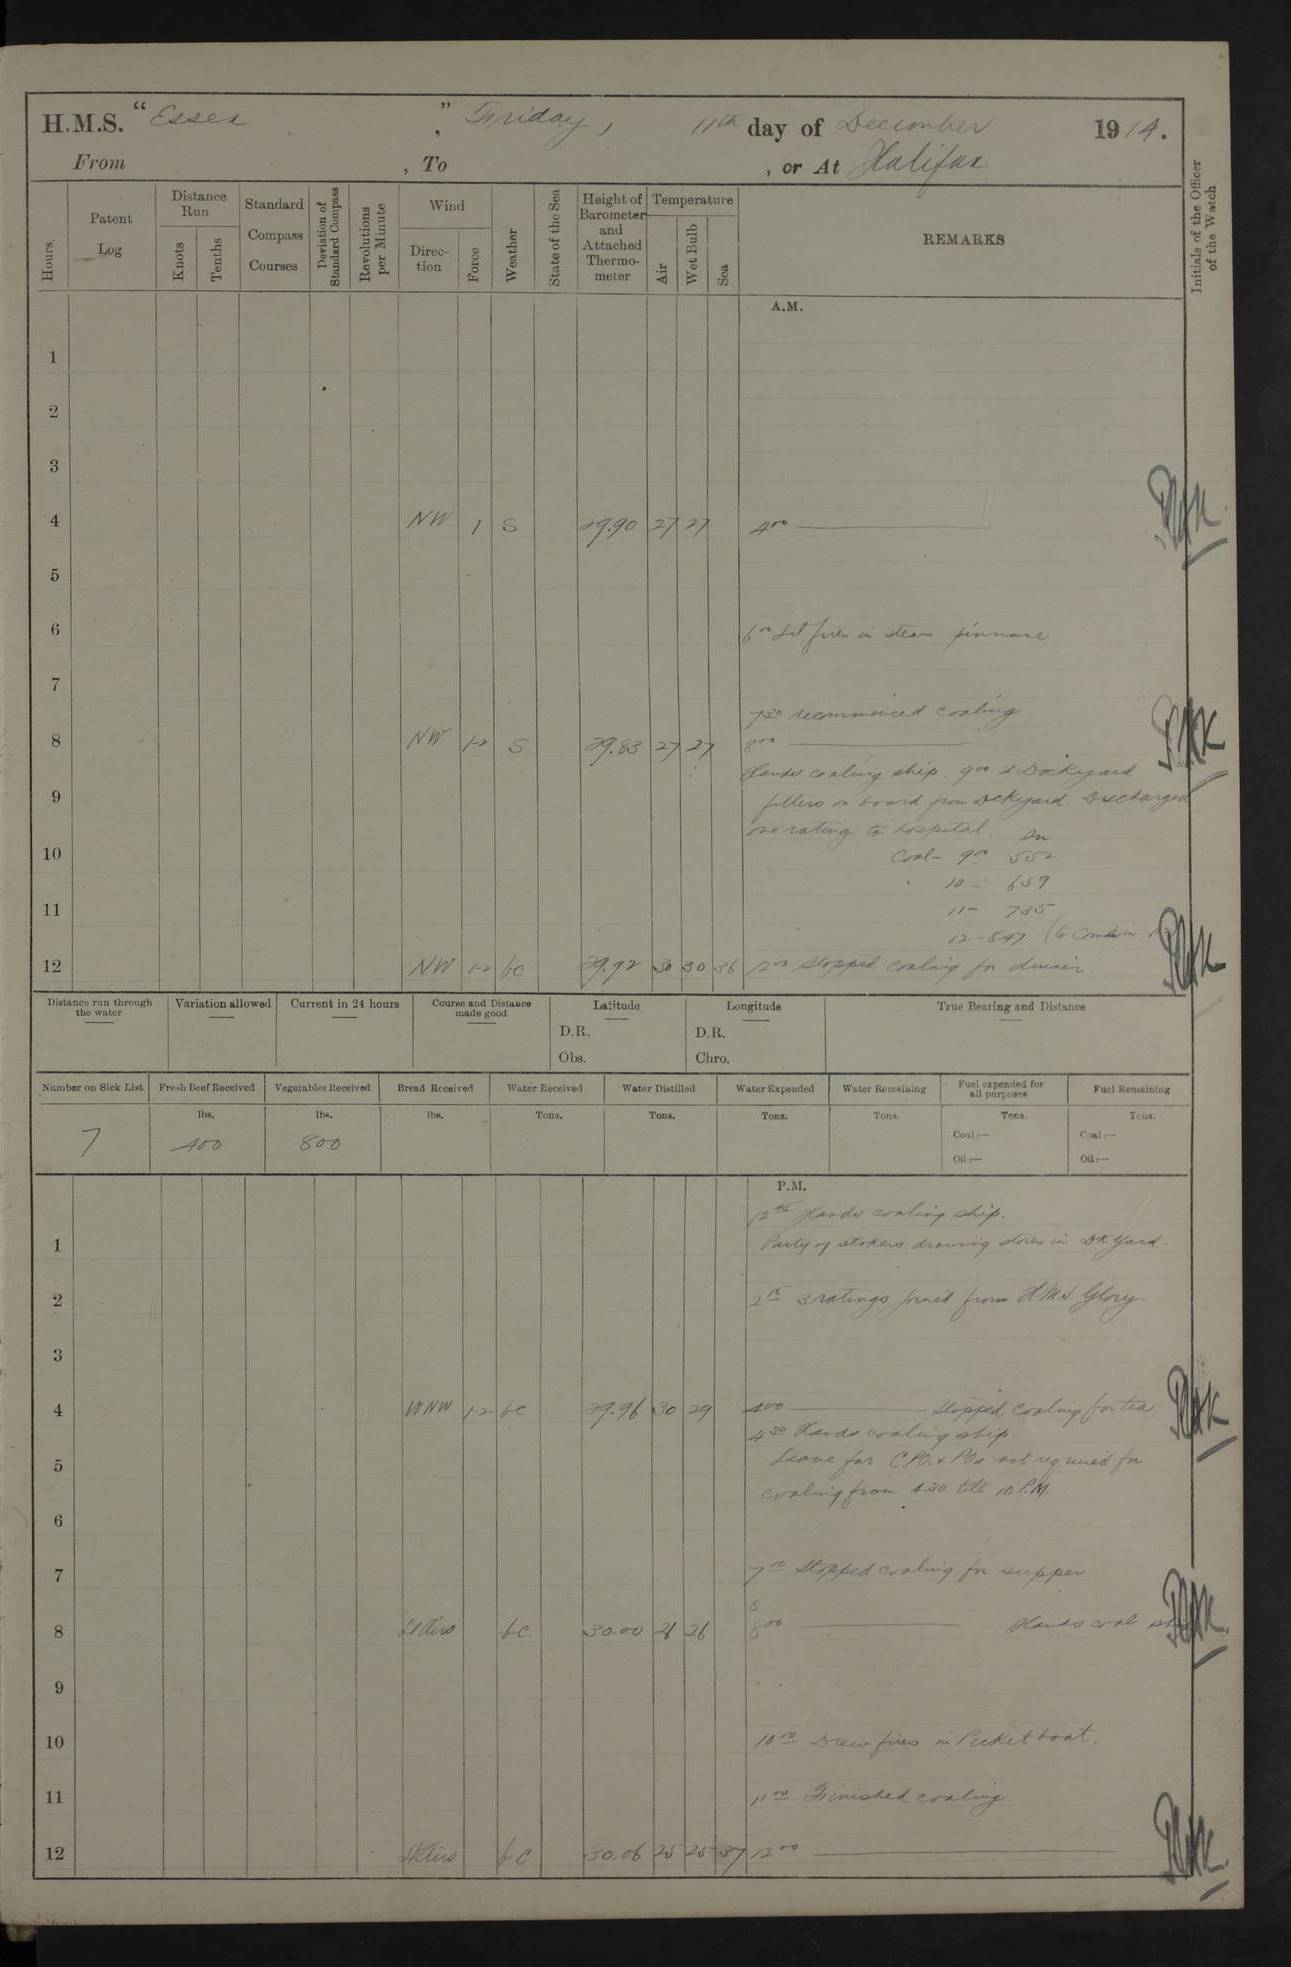 H.M.S. "Essex", Friday, 11th day of December 1914.
From , To , or At Halifax
Hours
Patent Log
Distance Run
Knots
Tenths
Standard Compass Courses
Deviation of Standard Compass
Revolutions per Minute
Wind
Direction
Force
Weather
State of the Sea
Height of Barometer and Attached Thermometer
Temperature
Air
Wet Bulb
Sea
REMARKS
Initials of the Officer of the Watch
A.M.
1
2
3
4 NW 1 S 29.90 27 27 4 00
5
6 6 00 Lit fires in steam pinnace
7
7 30 recommenced coaling
8 NW 1-2 S 29.83 27 27 8 00
Hands coaling ship. 9 00 Dockyard
9 fitters on board from Dckyard. Discharged
one rating to hospital. In
10 Coal - 9 00 552
10 - 659
11 11 - 735
12 - 847 (to
12 NW 1-2 bc 29.92 30 30 36 12 00 Stopped coaling for dinner.
Distance run through the water
Variation allowed
Current in 24 hours
Course and Distance made good
Latitude
D.R.
Obs.
Longitude
D.R.
Chro.
True Bearing and Distance
Number on Sick List
Fresh Beef Received
Vegetables Received
Bread Received
Water Received
Water Distilled
Water Expended
Water Remaining
Fuel expended for all purposes
Fuel Remaining
lbs. lbs. lbs. Tons. Tons. Tons. Tons. Tons. Tons.
7 400 800
Coal:— Coal:—
Oil:— Oil:—
P.M.
12 45 Hands coaling ship.
1 Party of stokers drawing stores in Dk Yard.
2 2 15 3 ratings joined from H.M.S. Glory.
3
4 WNW 1-2 bc 29.96 30 29 4 00 Stopped coaling for tea
4 30 Hands coaling ship.
5 Leave for C.P.O. & POs not required for
coaling from 4.30 till 10 P.M.
6
7 7 10 Stopped coaling for supper
8 bc 30.00 26 26 8 00 Hands coal ship
9
10 10 00 Drew fires in Picket boat.
11 11 00 Finished coaling
12 bc 30.06 25 25 37 12 00